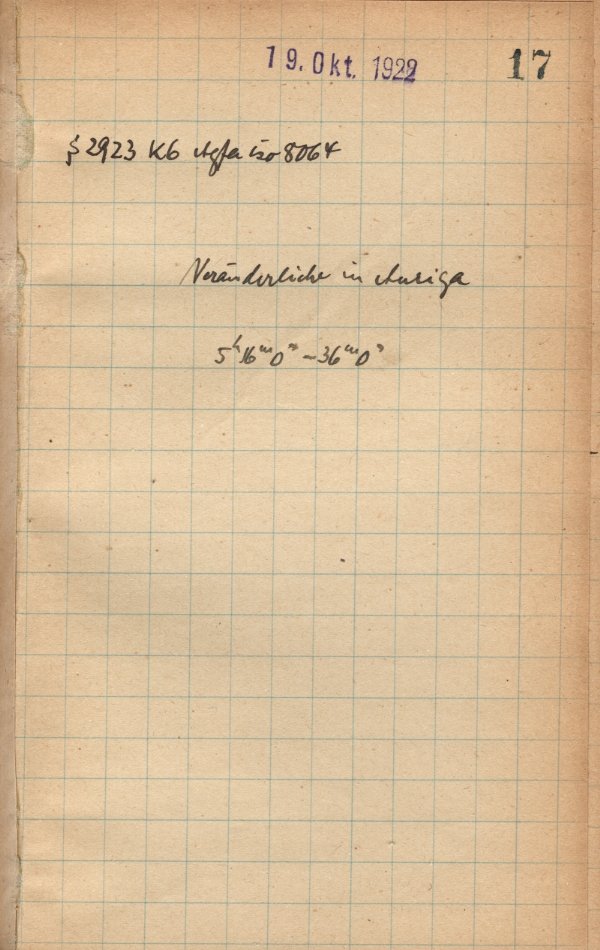 19. Okt. 1922
17
2923 K6 Agfa iso 8064
Veränderliche in Auriga
5ʰ16ᵐ0ˢ – 36ᵐ0ˢ